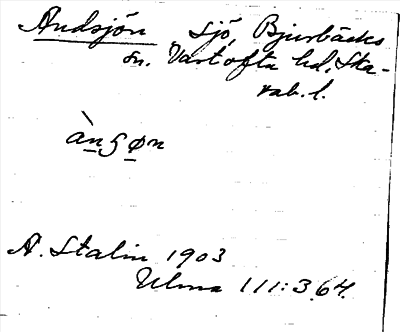 Andsjön sjö, Bjurbäcks
sn. Vartofta hd, Ska-
rab. l.
àn̲ʂø̲n
A. Stalin 1903
Ulma 111:364.